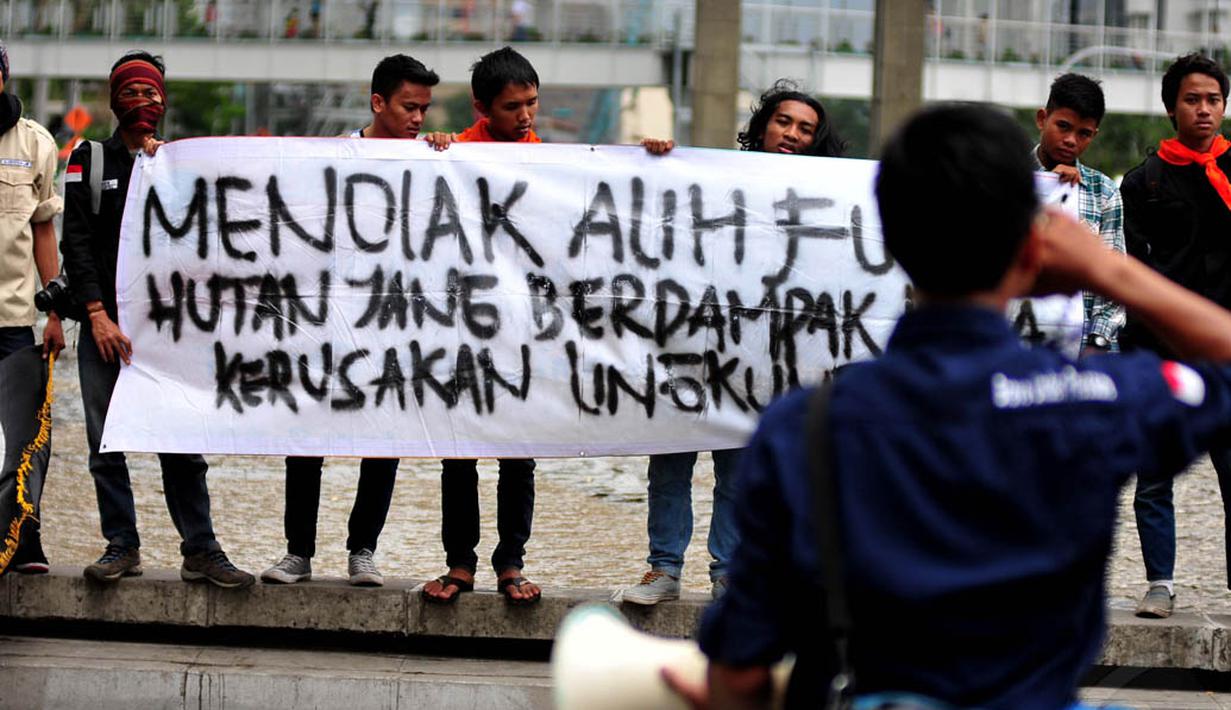 MENOLAK ALIH FU
HUTAN YANG BERDAMPAK
KERUSAKAN LINGKUN